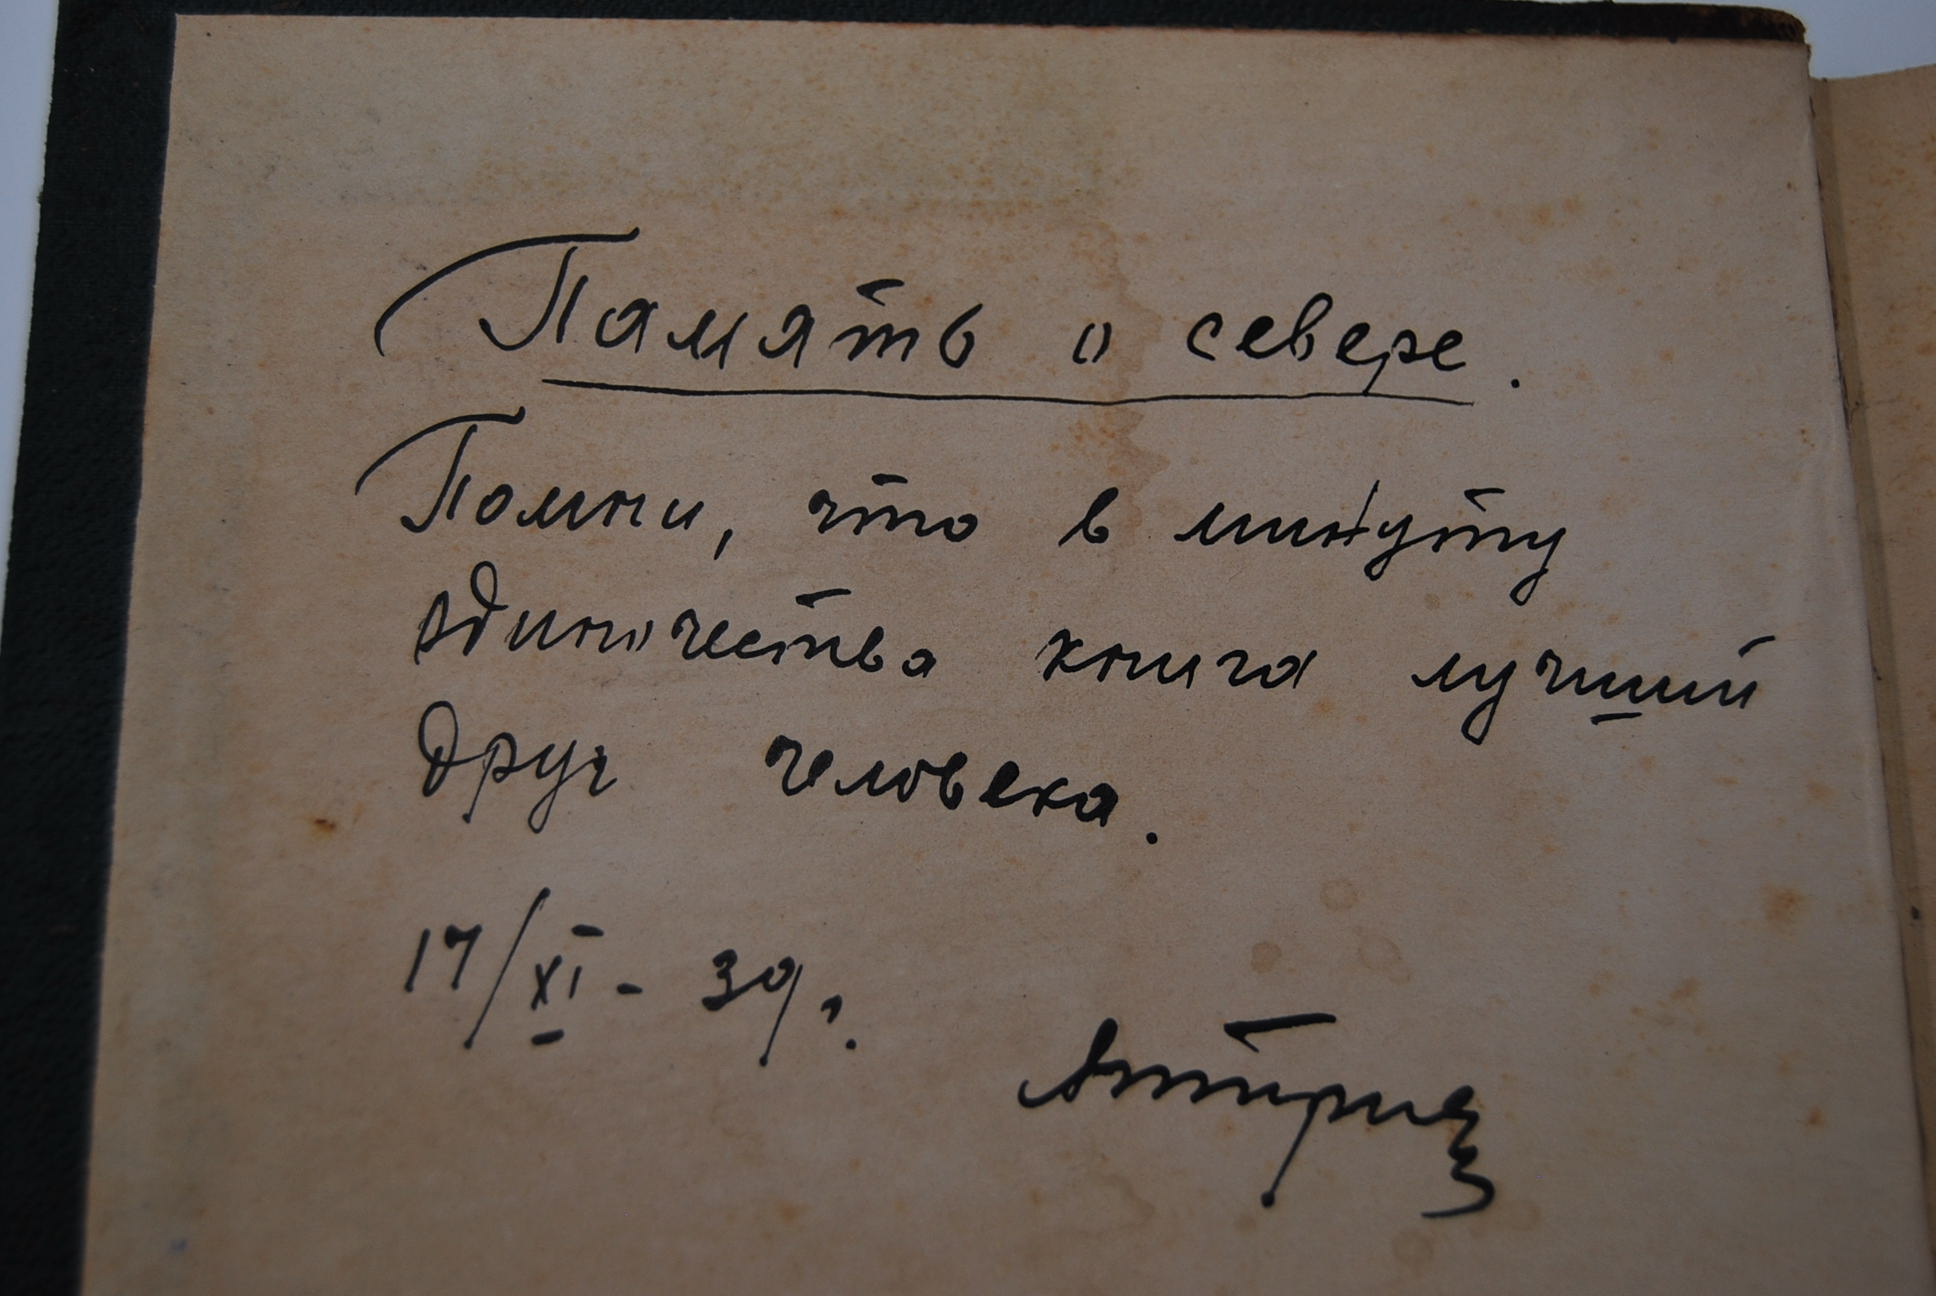 Память о севере.
Помни, что в минуту
одиночества книга лучший
друг человека.
17/XI - 39 г.